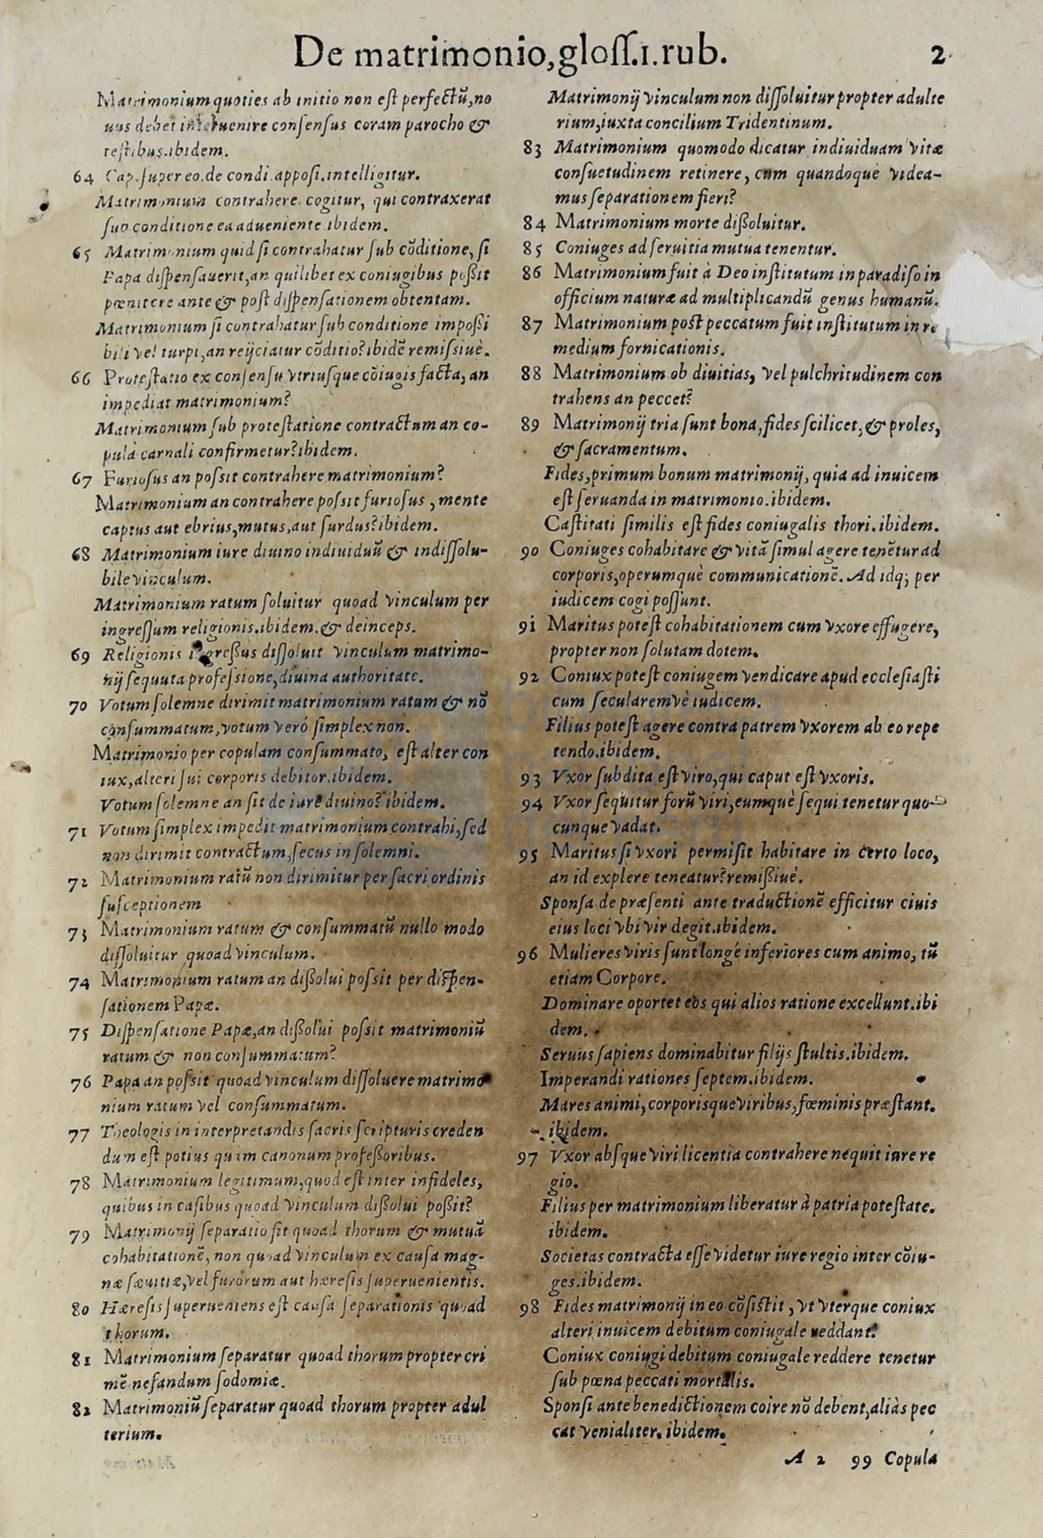 De matrimonio,gloss.1.rub. 2
Matrimonium quoties ab initio non est perfectũ,no
uus debet interuenire consensus coram parocho &
testibus.ibidem.
64 Cap.super eo.de condi.apposi.intelligitur.
Matrimonium contrahere cogitur, qui contraxerat
sub conditione ea adueniente.ibidem.
65 Matrimonium quid si contrahatur sub cõditione, si
Papa dispensauerit,an quilibet ex coniugibus possit
pœnitere ante & post dispensationem obtentam.
Matrimonium si contrahatur sub conditione impossi
bili vel turpi,an reijciatur cõditio?ibidẽ remissiuè.
66 Protestatio ex consensu vtriusque cõiugis facta, an
impediat matrimonium?
Matrimonium sub protestatione contractum an co-
pula carnali confirmetur?ibidem.
67 Furiosus an possit contrahere matrimonium?
Matrimonium an contrahere possit furiosus , mente
captus aut ebrius,mutus,aut surdus?ibidem.
68 Matrimonium iure diuino indiuiduũ & indissolu-
bile vinculum.
Matrimonium ratum soluitur quoad vinculum per
ingressum religionis.ibidem.& deinceps.
69 Religionis ingressus dissoluit vinculum matrimo-
nij sequuta professione,diuina authoritate.
70 Votum solemne dirimit matrimonium ratum & nõ
consummatum,votum verò simplex non.
Matrimonio per copulam consummato, est alter con
iux,alteri sui corporis debitor.ibidem.
Votum solemne an sit de iure diuino? ibidem.
71 Votum simplex impedit matrimonium contrahi,sed
non dirimit contractum,secus in solemni.
72 Matrimonium ratũ non dirimitur per sacri ordinis
susceptionem
73 Matrimonium ratum & consummatũ nullo modo
dissoluitur quoad vinculum.
74 Matrimonium ratum an dissolui possit per dispen-
sationem Papæ.
75 Dispensatione Papæ,an dissolui possit matrimoniũ
ratum & non consummatum?
76 Papa an possit quoad vinculum dissoluere matrimo
nium ratum vel consummatum.
77 Theologis in interpretandis sacris scripturis creden
dum est potius quam canonum professoribus.
78 Matrimonium legitimum,quod est inter infideles,
quibus in casibus quoad vinculum dissolui possit?
79 Matrimonij separatio fit quoad thorum & mutuã
cohabitationẽ, non quoad vinculum ex causa mag-
næ sæuitiæ,vel furorum aut hæresis superuenientis.
80 Hæresis superueniens est causa separationis quoad
thorum.
81 Matrimonium separatur quoad thorum propter cri
mẽ nefandum sodomiæ.
82 Matrimoniũ separatur quoad thorum propter adul
terium.
Matrimonij vinculum non dissoluitur propter adulte
rium,iuxta concilium Tridentinum.
83 Matrimonium quomodo dicatur indiuiduam vitæ
consuetudinem retinere, cum quandoquè videa-
mus separationem fieri?
84 Matrimonium morte dissoluitur.
85 Coniuges ad seruitia mutua tenentur.
86 Matrimonium fuit à Deo institutum in paradiso in
officium naturæ ad multiplicandũ genus humanũ.
87 Matrimonium post peccatum fuit institutum in re
medium fornicationis.
88 Matrimonium ob diuitias, vel pulchritudinem con
trahens an peccet?
89 Matrimonij tria sunt bona,fides scilicet,& proles,
& sacramentum.
Fides,primum bonum matrimonij, quia ad inuicem
est seruanda in matrimonio.ibidem.
Castitati similis est fides coniugalis thori.ibidem.
90 Coniuges cohabitare & vitã simul agere tenẽtur ad
corporis,operumquè communicationẽ. Ad idq; per
iudicem cogi possunt.
91 Maritus potest cohabitationem cum vxore effugere,
propter non solutam dotem.
92 Coniux potest coniugem vendicare apud ecclesiasti
cum secularemvè iudicem.
Filius potest agere contra patrem vxorem ab eo repe
tendo.ibidem.
93 Vxor subdita est viro,qui caput est vxoris.
94 Vxor sequitur forũ viri,eumquè sequi tenetur quo-
cunque vadat.
95 Maritus si vxori permisit habitare in certo loco,
an id explere teneatur?remissiuè.
Sponsa de præsenti ante traductionẽ efficitur ciuis
eius loci vbi vir degit.ibidem.
96 Mulieres viris sunt longé inferiores cum animo, tũ
etiam Corpore.
Dominare oportet eos qui alios ratione excellunt.ibi
dem.
Seruus sapiens dominabitur filijs stultis.ibidem.
Imperandi rationes septem.ibidem.
Mares animi,corporisque viribus,fœminis præstant.
ibidem.
97 Vxor absque viri licentia contrahere nequit iure re
gio.
Filius per matrimonium liberatur à patria potestate.
ibidem.
Societas contracta esse videtur iure regio inter cõiu-
ges.ibidem.
98 Fides matrimonij in eo cõsistit , vt vterque coniux
alteri inuicem debitum coniugale reddant.
Coniux coniugi debitum coniugale reddere tenetur
sub pœna peccati mortalis.
Sponsi ante benedictionem coire nõ debent,aliàs pec
cat venialiter. ibidem.
A 2 99 Copula